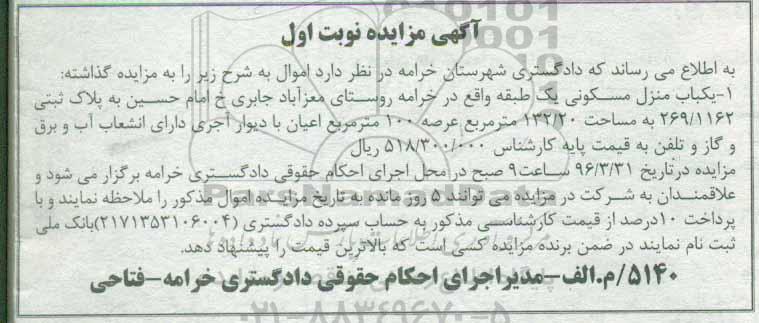 آگهی مزایده نوبت اول
به اطلاع می رساند که دادگستری شهرستان خرامه در نظر دارد اموال به شرح زیر را به مزایده گذاشته:
۱-یکباب منزل مسکونی یک طبقه واقع در خرامه روستای معزآباد جابری خ امام حسین به پلاک ثبتی
۲۶۹/۱۱۶۲ به مساحت ۱۳۲/۲۰ مترمربع عرصه ۱۰۰ مترمربع اعیان با دیوار آجری دارای انشعاب آب و برق
و گاز و تلفن به قیمت پایه کارشناس ۵۱۸/۳۰۰/۰۰۰ ریال
مزایده درتاریخ ۹۶/۳/۳۱ ساعت۹ صبح در محل اجرای احکام حقوقی دادگستری خرامه برگزار می شود و
علاقمندان به شرکت در مزایده می توانند ۵ روز مانده به تاریخ مزایده اموال مذکور را ملاحظه نمایند و با
پرداخت ۱۰درصد از قیمت کارشناسی مذکور به حساب سپرده دادگستری (۲۱۷۱۳۵۳۱۰۶۰۰۴)بانک ملی
ثبت نام نمایند در ضمن برنده مزایده کسی است که بالاترین قیمت را پیشنهاد دهد.
۵۱۴۰/م.الف-مدیراجرای احکام حقوقی دادگستری خرامه-فتاحی
۰۲۱-۸۸۳۴۹۶۷۰-۵